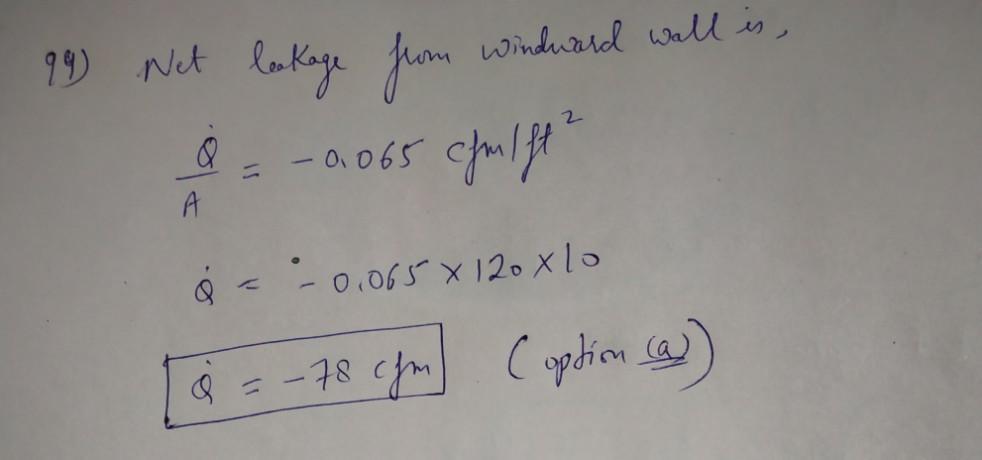 99) Net leakage from windward wall is,
Q̇/A = -0.065 cfm/ft²
Q̇ = -0.065 × 120 × 10
Q̇ = -78 cfm (option (a))